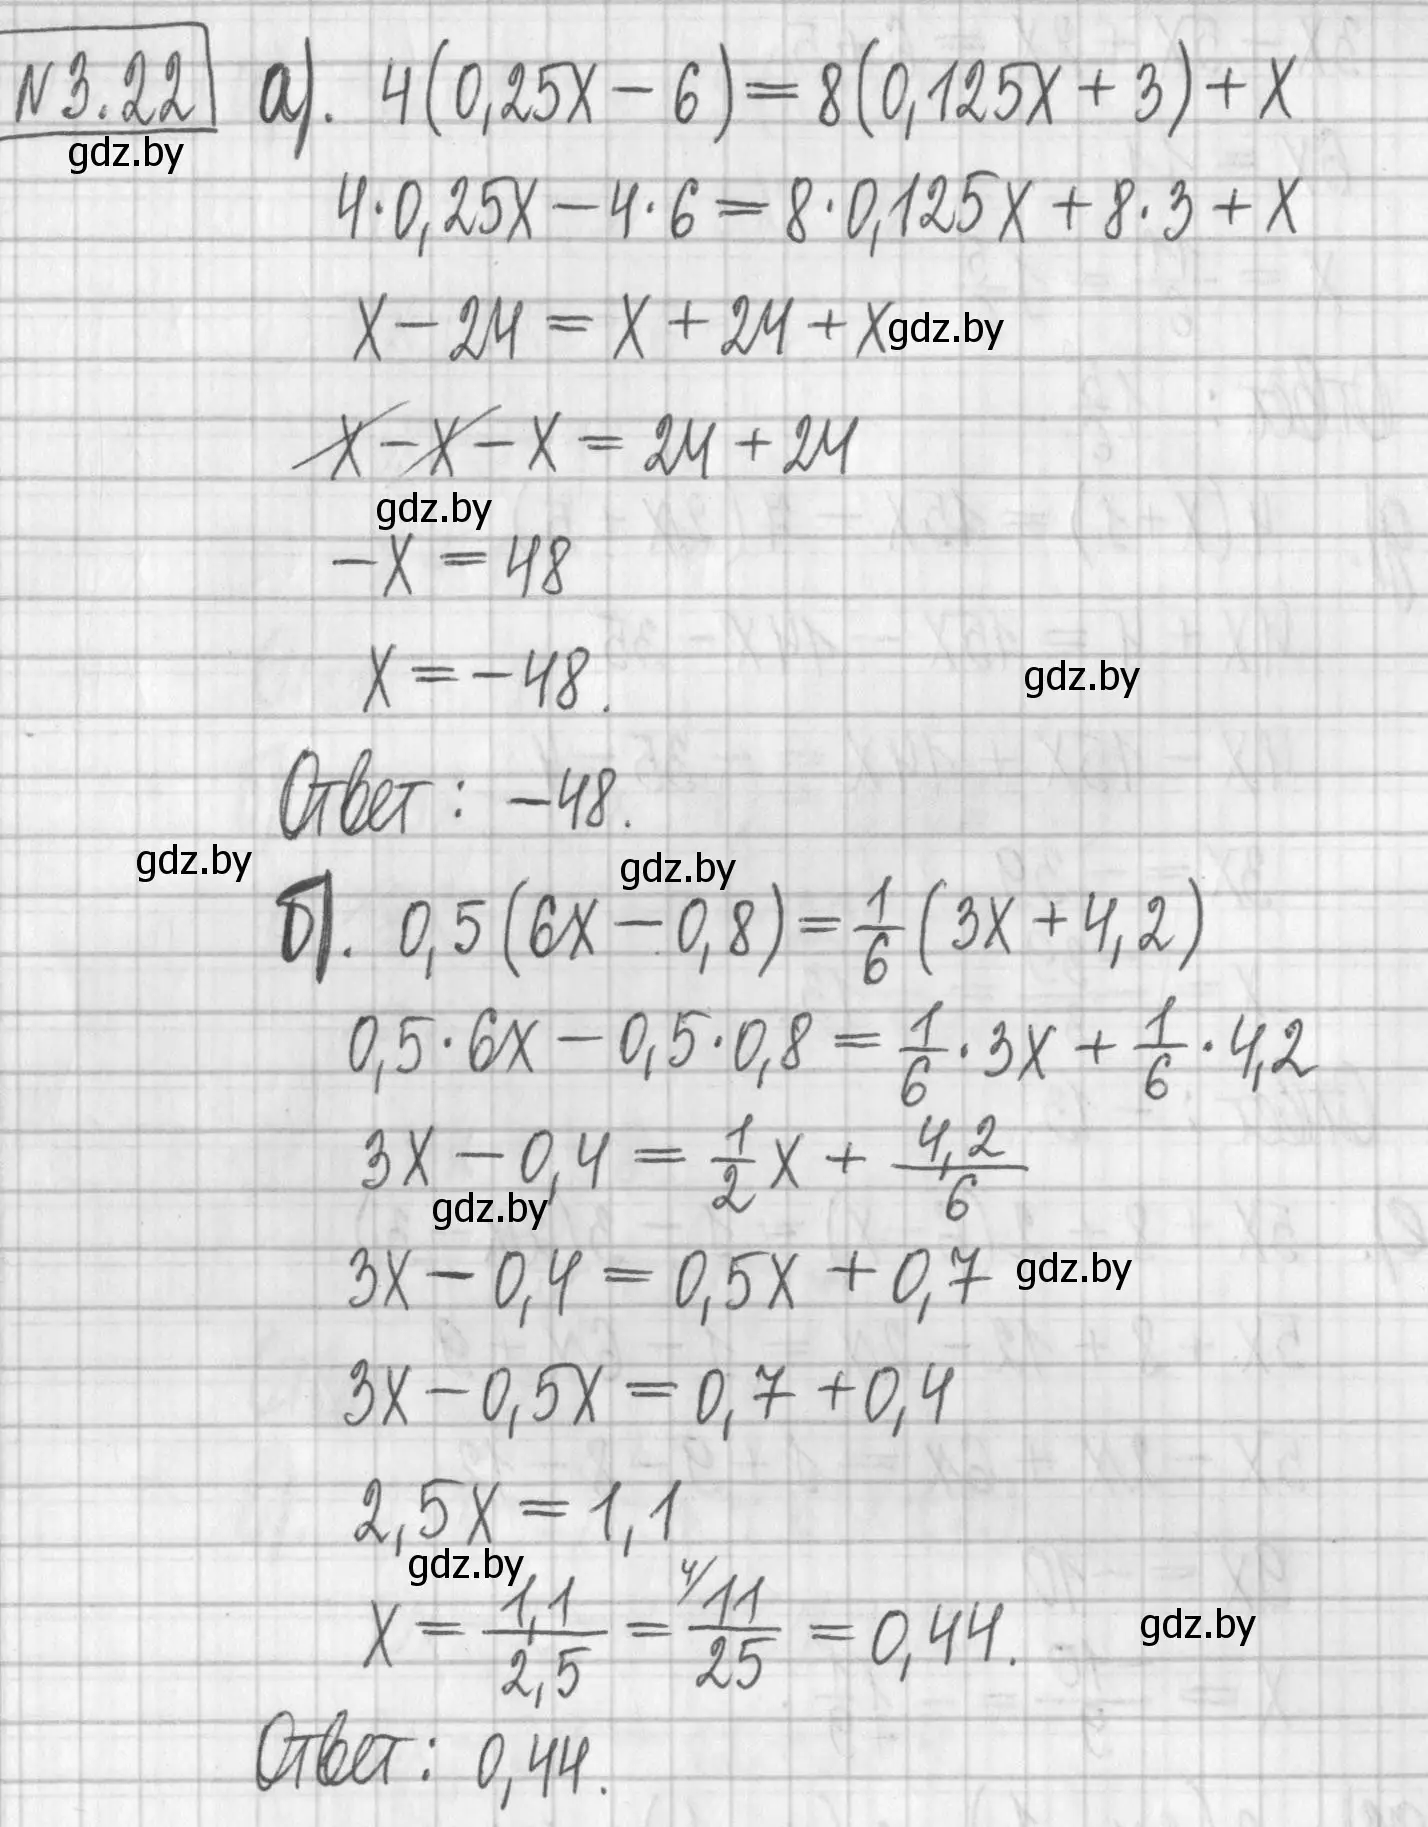 №3.22 а). 4(0,25x − 6) = 8(0,125x + 3) + x
gdz.by
4·0,25x − 4·6 = 8·0,125x + 8·3 + x
x − 24 = x + 24 + x gdz.by
x − x − x = 24 + 24
gdz.by
−x = 48
x = −48. gdz.by
Ответ: −48.
gdz.by gdz.by
б). 0,5(6x − 0,8) = 1/6 (3x + 4,2)
0,5·6x − 0,5·0,8 = 1/6 · 3x + 1/6 · 4,2
3x − 0,4 = 1/2 x + 4,2/6
gdz.by
3x − 0,4 = 0,5x + 0,7 gdz.by
3x − 0,5x = 0,7 + 0,4
2,5x = 1,1
gdz.by
x = 1,1/2,5 = 4/ 11/25 = 0,44. gdz.by
Ответ: 0,44.